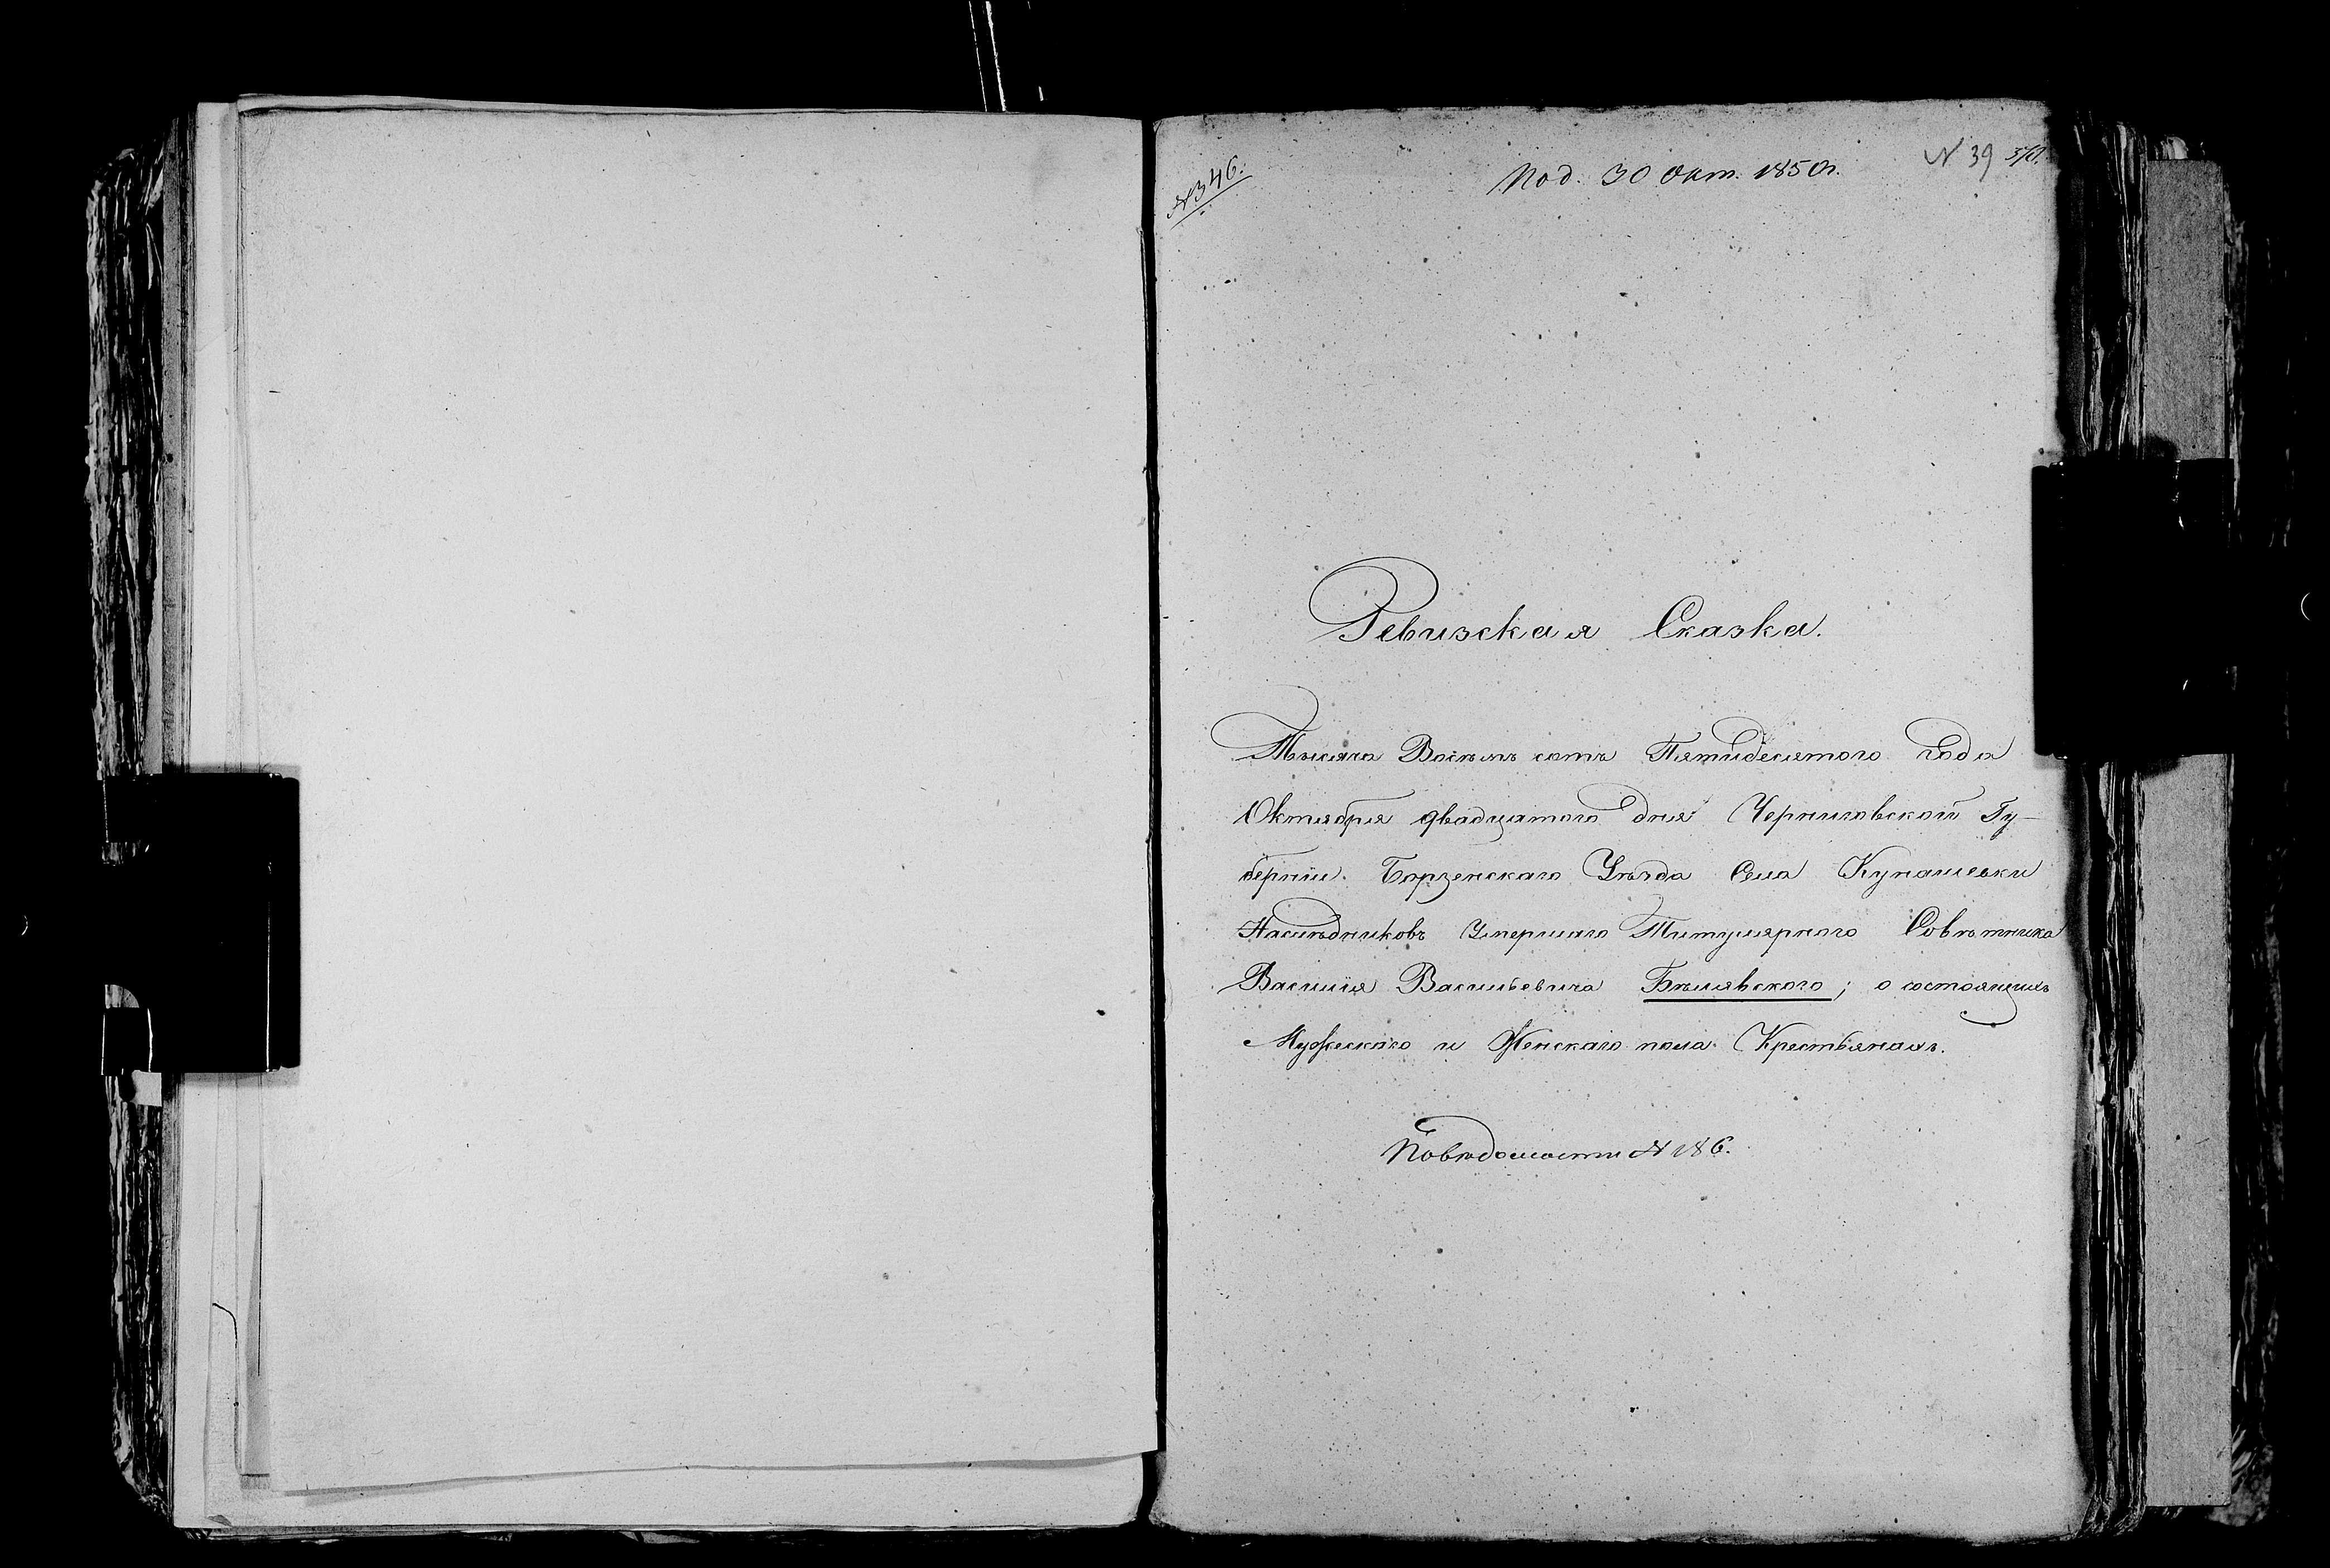 № 346.
Под. 30 Окт. 1850 г.
№ 39
Ревизская Сказка.
Тысяча Восѣмъ сотъ Пятидесятого года
Октября двадцатого дня Черниговской Гу-
берніи Борзенскаго Уѣзда Села Кунашевки
Наслѣдниковъ Умершаго Титулярного Совѣтника
Василія Васильевича Бѣлявского; о состоящихъ
Мужескаго и Женскаго пола Крестьянахъ.
По вѣдомости № 186.